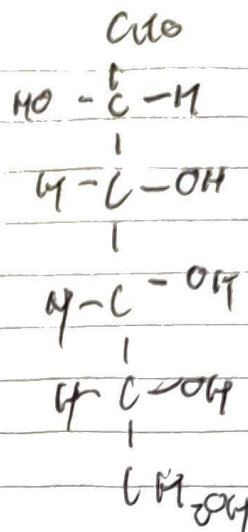 CHO
HO - C - H
H - C - OH
H - C - OH
H - C - OH
CH₂OH